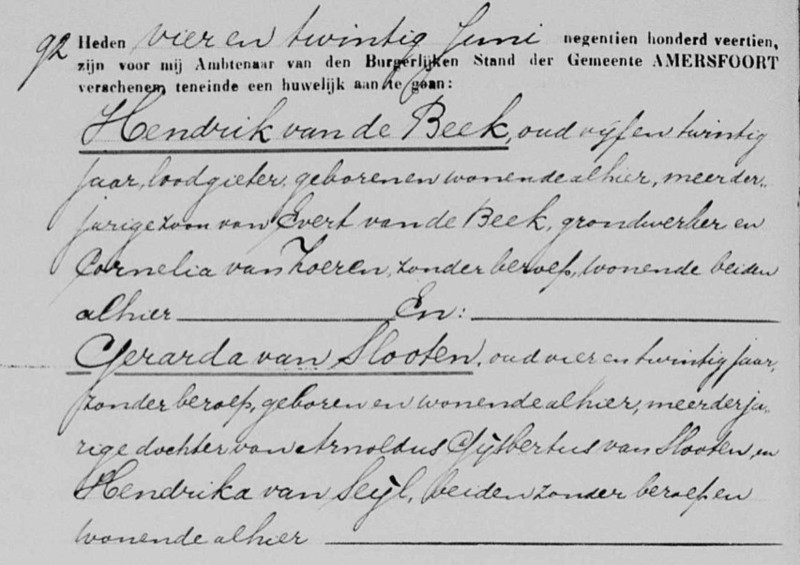 92 Heden vier en twintig Juni negentien honderd veertien,
zijn voor mij Ambtenaar van den Burgerlijken Stand der Gemeente AMERSFOORT
verschenen, teneinde een huwelijk aan te gaan:
Hendrik van de Beek, oud vijf en twintig
jaar, loodgieter, geboren en wonende alhier, meerder-
jarige zoon van Evert van de Beek, grondwerker en
Cornelia van Zoeren, zonder beroep, wonende beiden
alhier En:
Gerarda van Slooten, oud vier en twintig jaar,
zonder beroep, geboren en wonende alhier, meerderja-
rige dochter van Arnoldus Gijsbertus van Slooten, en
Hendrika van Seijl, beiden zonder beroep en
wonende alhier